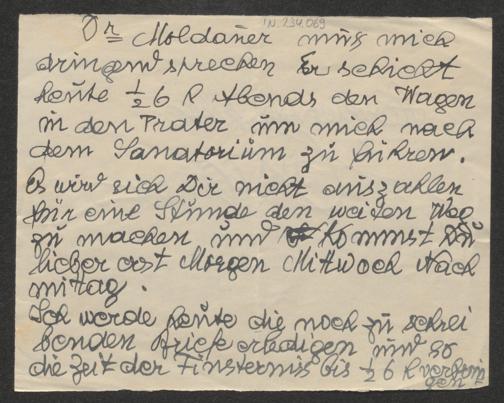 IN. 234.069
Dr Moldauer muss mich
dringend sprechen Er schickt
heute ½ 6 h Abends den Wagen
in den Prater um mich nach
dem Sanatorium zu führen.
Es wird sich Dir nicht auszahlen
für eine Stunde den weiten Weg
zu machen und kommst Du
lieber erst Morgen Mittwoch Nach
mitag.
Ich werde heute die noch zu schrei
benden Briefe erledigen und so
die Zeit der Finsterniss bis ½ 6 h verbrin
gen